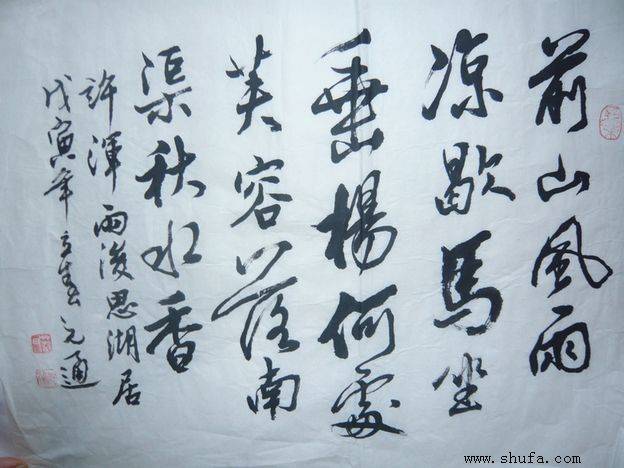 前山風雨
凉歇馬坐
垂楊何處
芙容落南
渠秋水香
許渾雨後思湖居
戊寅年立春元通
www.shufa.com